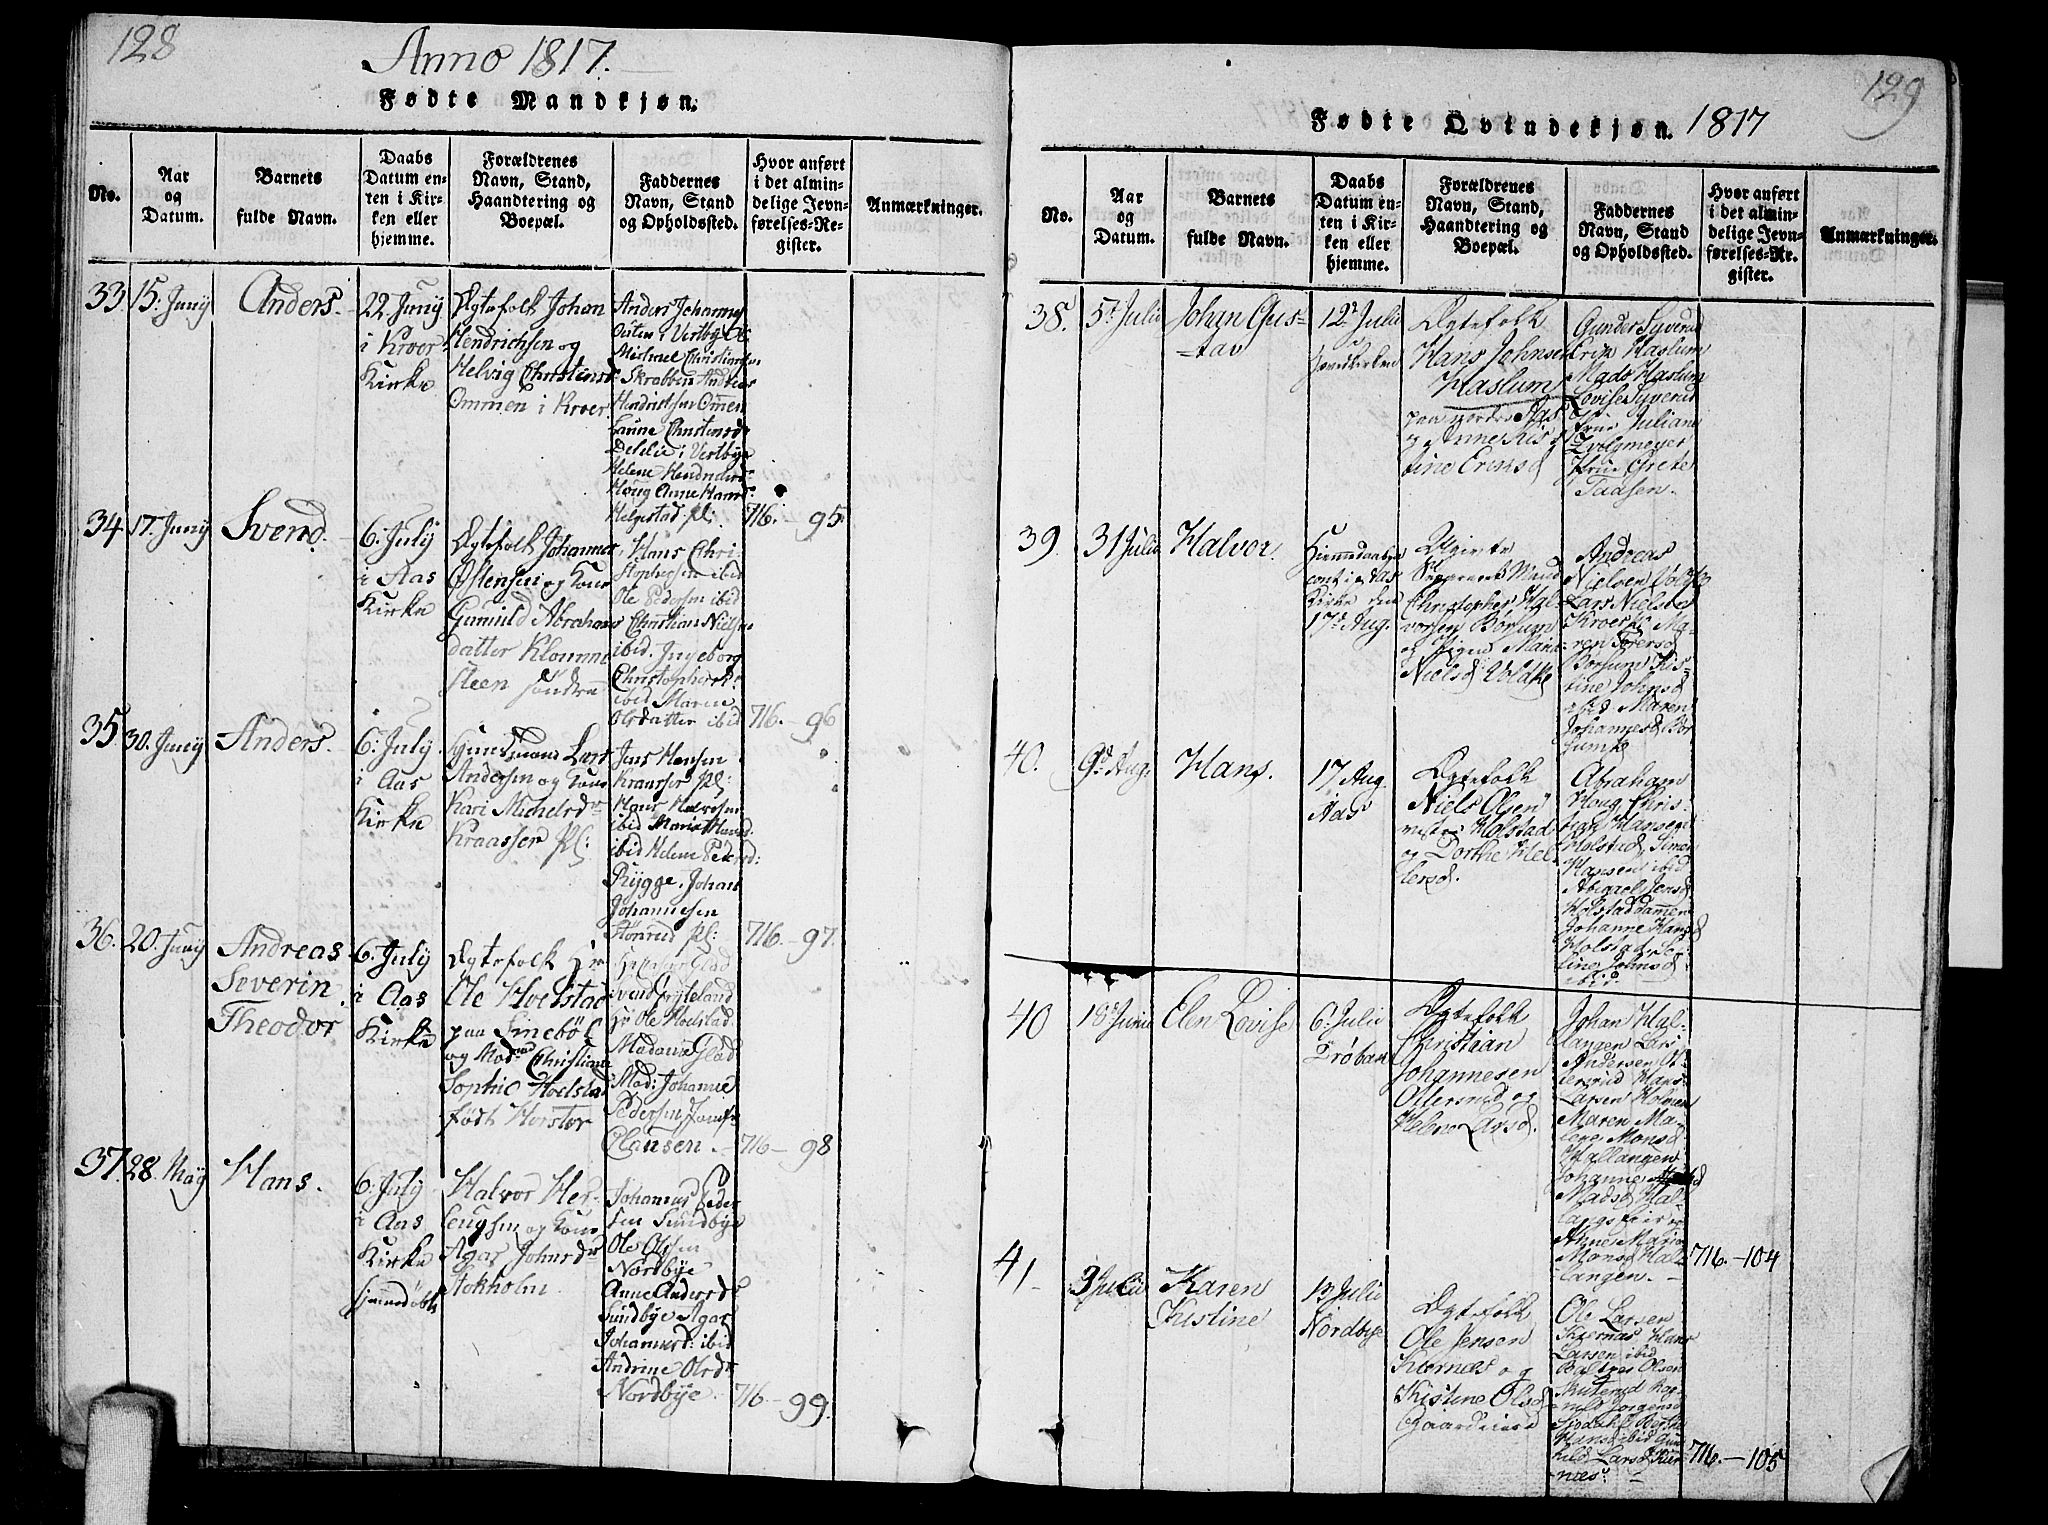 128
Anno 1817.
Fødte Mandkjøn.
No.
Aar
og
Datum.
Barnets
fulde Navn.
Daabs
Datum en-
ten i Kir-
ken eller
hjemme.
Forældrenes
Navn, Stand,
Haandtering og
Boepæl.
Faddernes
Navn, Stand
og Opholdssted.
Hvor anført
i det almin-
delige Jevn-
førelses-Re-
gister.
Anmærkninger.
33. 15. Juny
Anders.
22 Juny
i Kroer
Kirke
Ægtefolk Johan
Hendrichsen og
Helvig Christensd
Ommen i Kroer.
Anders Johannes
Michael Christensen
Skrabben Andreas
Hendrichsen Ommen
Christensd
i Vestbye
Helene Hendrichsd
Houg Anne Hansd
Helgestad pl:
716. – 95.
34 17. Juny
Svend.
6. July
i Aas
Kirke
Ægtefolk Johannes
Østensen og Kone
Gunnild Abrahams
datter Klomme
steen søndre
Hans Chri-
stophersen ibid
Ole Pedersen ibid
Christian Nielsen
ibid. Ingeborg
Christophersd.
ibid Maren
Olsdatter ibid
716. – 96
35. 30. Juny
Anders.
6. July
i Aas
Kirke
Huusmand Lars
Andersen og Kone
Kari Michelsdr
Kraasser Pl:
Jens Hansen
Kraasser pl:
Hans Halvorsen
ibid Marie Hansd.
ibid Helene Pedersd:
Rygge. Johan
Johannesen
pl:
716 – 97.
36. 20. Juny
Andreas
Severin
Theodor
6. July
i Aas
Kirke
Ægtefolk Hr
Ole Hoelstad
paa Sinebøl
og Mad Christiane
Sophie Hoelstad
født Horster
Glad
Svend Gryteland
Hr Ole Hoelstad.
Madame Glad
Mad: Johanne
Pedersen Jomfr
Clausen.
716 – 98
37. 28. May
Hans.
6. July
i Aas
Kirke
hjemmedøbt
Halvor Her-
lougsen og Kone
Agar Johnsdr
Stokholm
Johannes Peder
sen Sundbye
Ole Olsen
Nordbye
Anne Andersdr
Sundbye Agar
Johannesd: ibid
Andrine Olsdr
Nordbye.
716 – 99.
129
Fødte Qvindekjøn. 1817
No.
Aar
og
Datum.
Barnets
fulde Navn.
Daabs
Datum en-
ten i Kir-
ken eller
hjemme.
Forældrenes
Navn, Stand,
Haandtering og
Boepæl.
Faddernes
Navn, Stand
og Opholdssted.
Hvor anført
i det almin-
delige Jevn-
førelses-Re-
gister.
Anmærkninger.
38. 5t Julii
Johan Gus-
tav
12t Julii
Hovedkirken
Ægtefolk
Hans Johnsen
Haslum
paa nordre Aas
og Anne Kis
tine Ericsd
Gunder Syverud
Erik Haslum
Mads Haslum
Lovise Syverud
Frue Juliane
Zvilgmeyer
Frue Grete
Taasen.
39. 31 Julii
Halvor.
Hiemmedaaben
conf: i Aas
Kirke den
17d Aug.
Ugivte
Separeret Mand
Christopher Hal-
vorsen Borsum
og Pigen Marie
Nielsd Voldke
Andreas
Nielsen
Lars Nielsen
Kroer Ma-
ren
Borsum Kis-
tine Johnsd
ibid Maren
Johannesd Bor
sum
40. 9d Aug.
Hans.
17 Aug
Aas
Ægtefolk
Niels Olsen
Holstad
og Dorthe Hel-
lersd.
Abraham
Houg Chris-
tian Hansen
Holstad, Simon
Hansen ibid
Abigael Jensd
Holstaddammen
Johanne Hansd
Holstad
Johnsd
ibid.
40 18d Junii
Elen Lovise
6. Julii
Drøbak
Ægtefolk
Christian
Johannesen
Ottersrud og
Helene Larsd.
Johan Hal-
langen Lars
Andersen Ot-
tersrud Hans
Larsen Holmen
Maren Ma-
rie Monsd
Hallangen
Johanne
Madsd Hal-
langs
Anne Marie
Monsd Hal-
langen. –
716. – 104
41 – 3 Julii
Karen
Kistine
13 Julii
Nordbye
Ægtefolk
Ole Jensen
Kiernæs og
Kistine Olsd
Gaardeiere
Ole Larsen
Kiernæs Hans
Larsen ibid
Baltzer Olsen
Skuterud Rag-
nild Jørgensd
Berthe
Hansd ibid Gun
hild Larsd Kier
næs. –
716. – 105